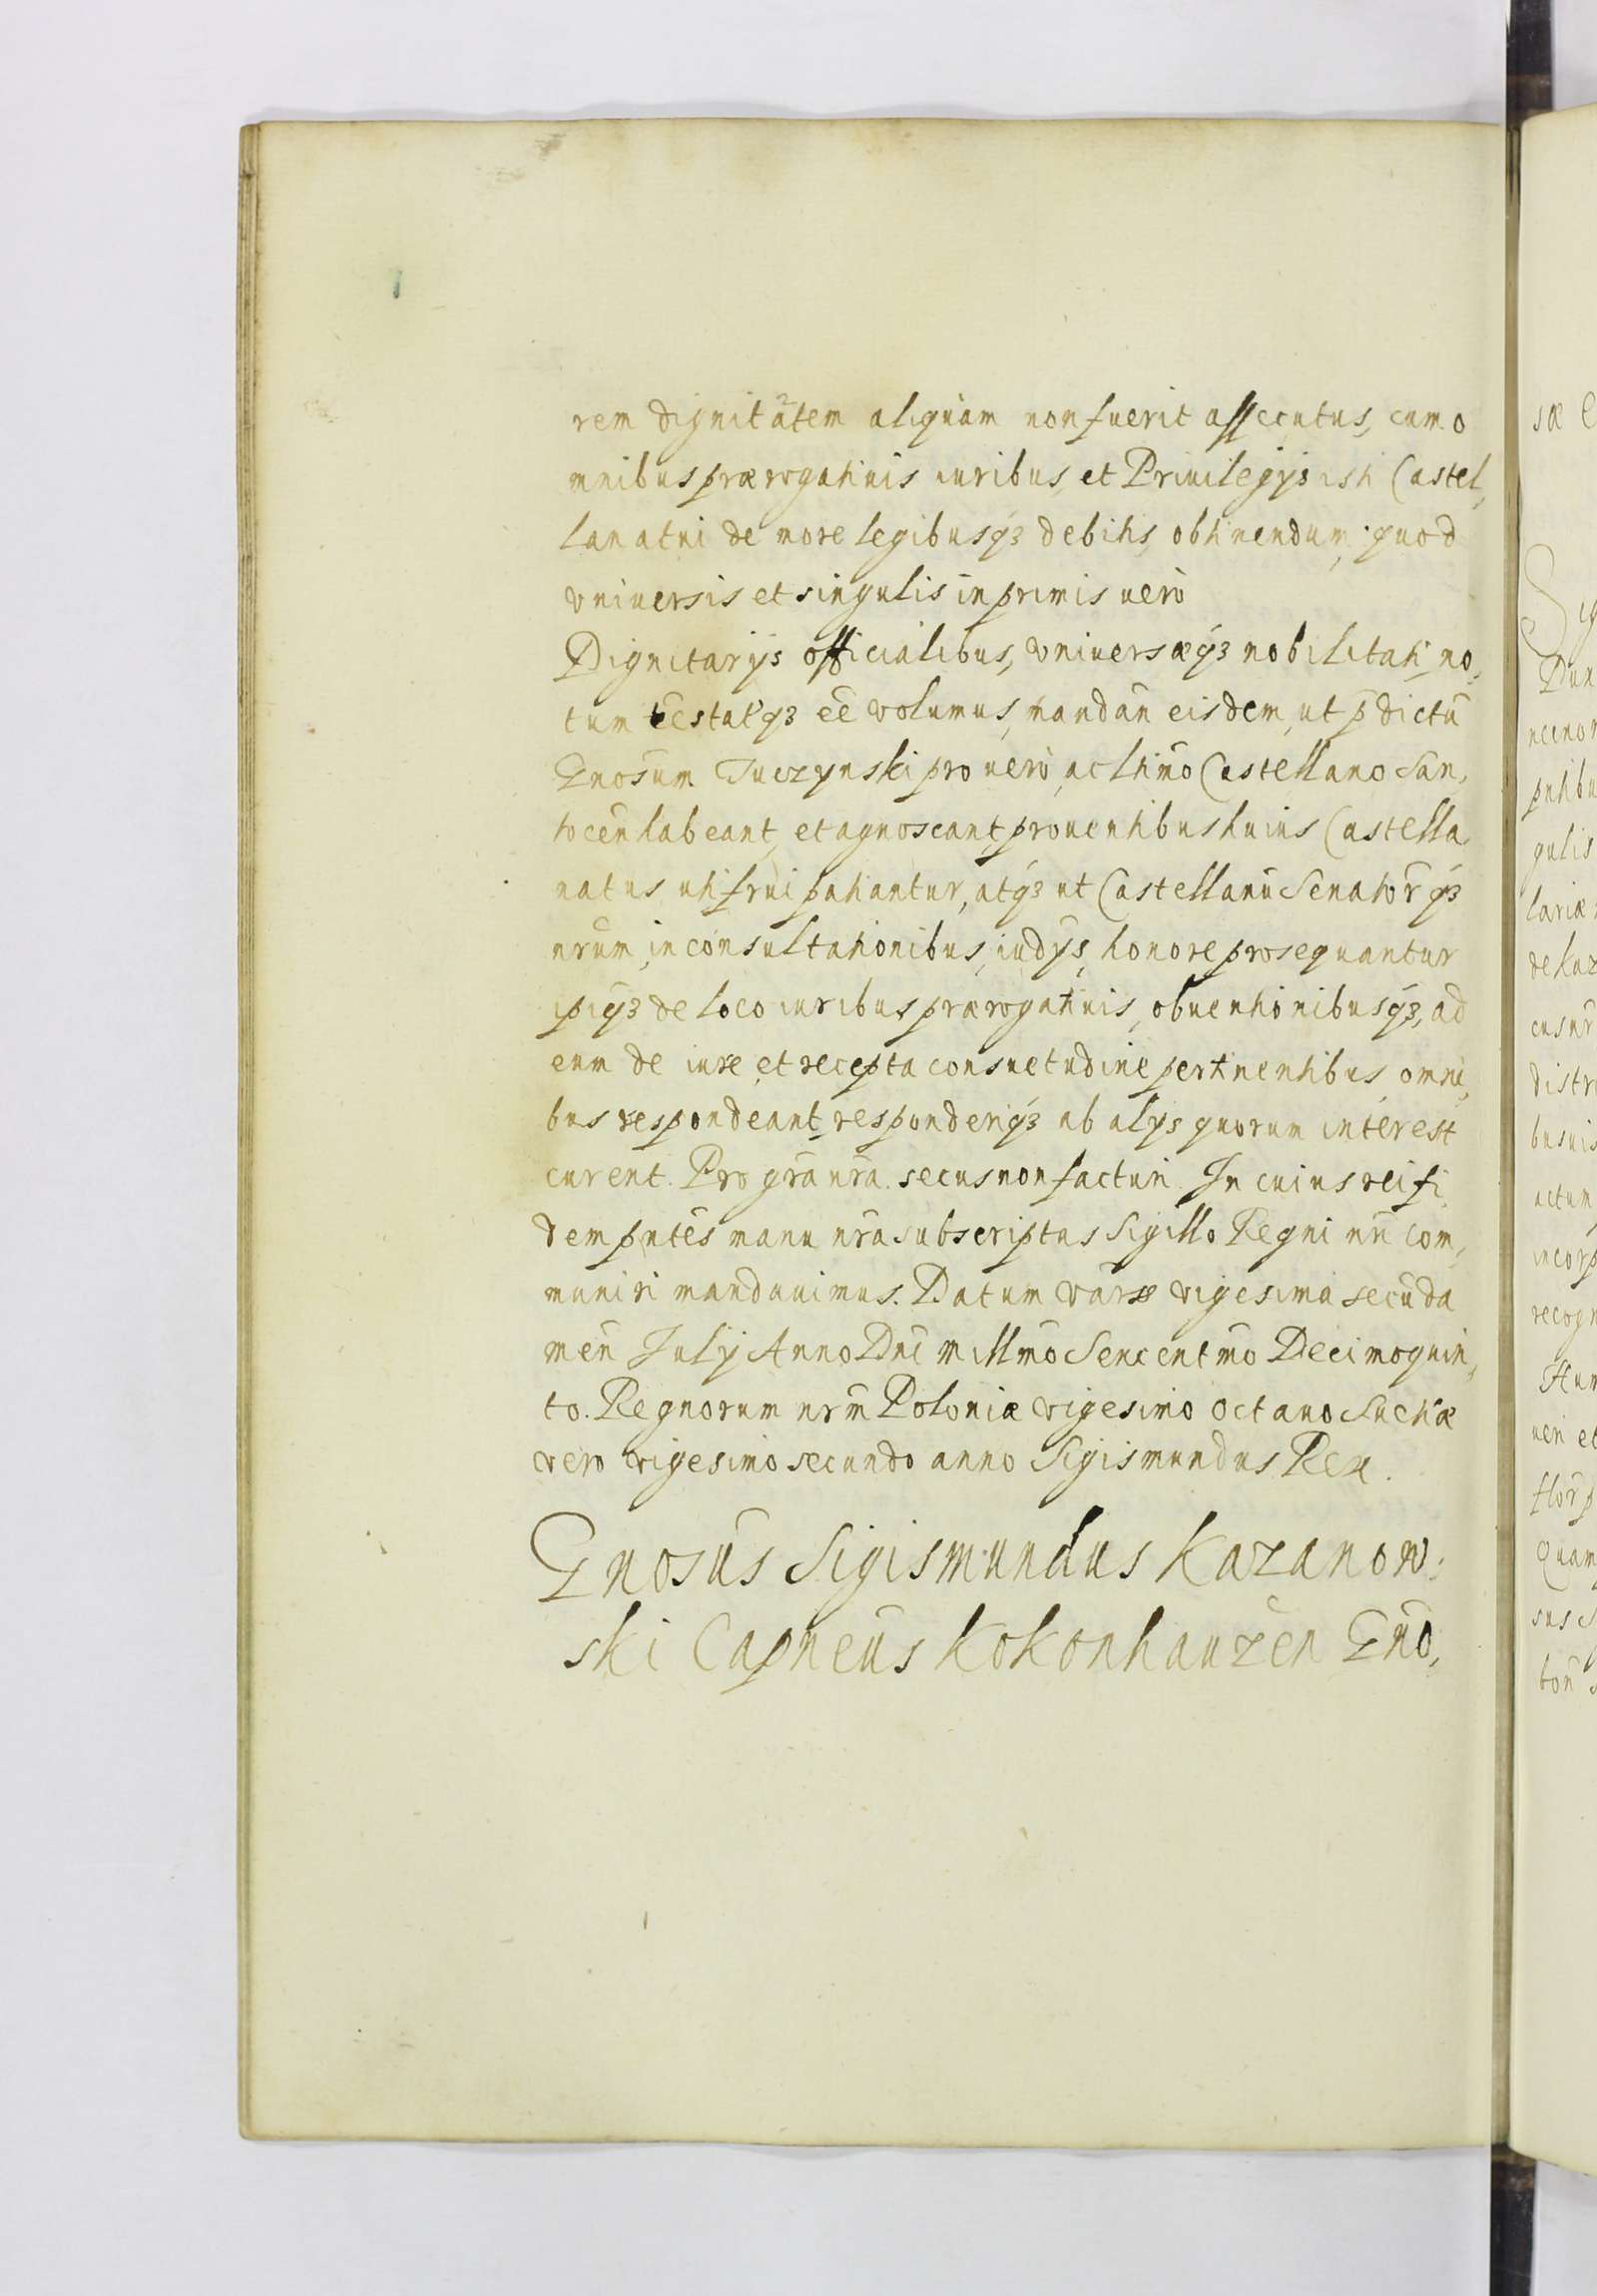 rem dignitatem aliquam non fuerit assecutus, cum o
mnibus prærogatiuis iuribus et Priuilegÿs isti Castel,
lanatui de more legibusqꝫ debitis obtinendum, quod
vniuersis et singulis in primis uerò
Dignitarÿs officialibus, vniuersæqꝫ nobilitati no,
tum testatqꝫ eē volumus, mandān eisdem, ut p̄dictū
Gnosum Tuczynski pro uerò ac lt̄imo Castellano San,
tocēn habeant, et agnoscant, prouentibus huius Castella,
natus uti frui patiantur, atqꝫ ut Castellanū Senatōrqꝫ
nrūm, in consultationibus, iudÿs, honore prosequantur
ipiqꝫ de loco iuribus prærogatiuis, obuentionibusqꝫ, ad
eum de iure et recepta consuetudine pertinentibus omni,
bus respondeant, responderiqꝫ ab alÿs quorum interest
curent. Pro grā nrā secus non facturi. In cuius rei fi,
dem pntēs manu nrā subscriptas Sigillo Regni nri com,
muniri mandauimus. Datum Varsæ vigesima secūda
men Julÿ Anno Dnī millmo Sexcentmo Decimoquin,
to. Regnorum nrm Poloniæ vigesimo octauo Suetiæ
vero vigesimo secundo anno Sigismundus Rex.
Gnosus Sigismundus Kazanow,
ski Capneūs Kokonhauzēn Gnō,
sæ
Sig
pntibu
gulis
lariæ
de Kaz
distr
actum
incorp
recogn
Hum
ueri et
Quam